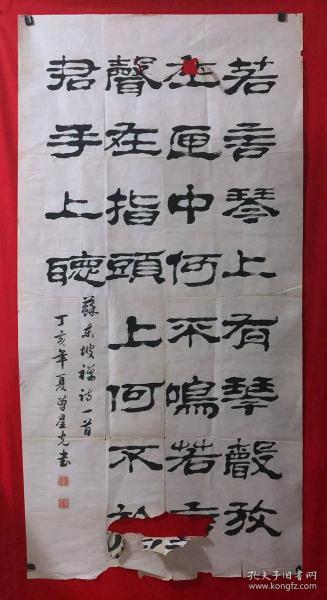 若言琴上有琴聲放
在匣中何不鳴若言
聲在指頭上何不於
君手上聽
蘇東坡禪詩一首
丁亥年夏曾星光書
孔夫子旧书网
kongfz.com